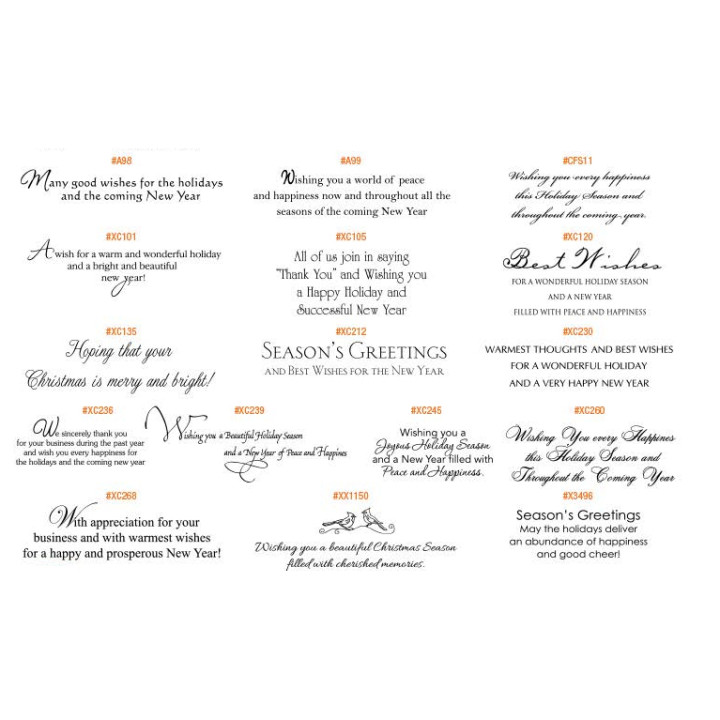 #A98
Many good wishes for the holidays
and the coming New Year
#A99
Wishing you a world of peace
and happiness now and throughout all the
seasons of the coming New Year
#CFS11
Wishing you every happiness
this Holiday Season and
throughout the coming year.
#XC101
A wish for a warm and wonderful holiday
and a bright and beautiful
new year!
#XC105
All of us join in saying
"Thank You" and Wishing you
a Happy Holiday and
Successful New Year
#XC120
Best Wishes
FOR A WONDERFUL HOLIDAY SEASON
AND A NEW YEAR
FILLED WITH PEACE AND HAPPINESS
#XC135
Hoping that your
Christmas is merry and bright!
#XC212
SEASON'S GREETINGS
AND BEST WISHES FOR THE NEW YEAR
#XC230
WARMEST THOUGHTS AND BEST WISHES
FOR A WONDERFUL HOLIDAY
AND A VERY HAPPY NEW YEAR
#XC236
We sincerely thank you
for your business during the past year
and wish you every happiness for
the holidays and the coming new year
#XC239
Wishing you a Beautiful Holiday Season
and a New Year of Peace and Happines
#XC245
Wishing you a
Joyous Holiday Season
and a New Year filled with
Peace and Happiness.
#XC260
Wishing You every Happines
this Holiday Season and
Throughout the Coming Year
#XC268
With appreciation for your
business and with warmest wishes
for a happy and prosperous New Year!
#XX1150
Wishing you a beautiful Christmas Season
filled with cherished memories.
#X3496
Season's Greetings
May the holidays deliver
an abundance of happiness
and good cheer!